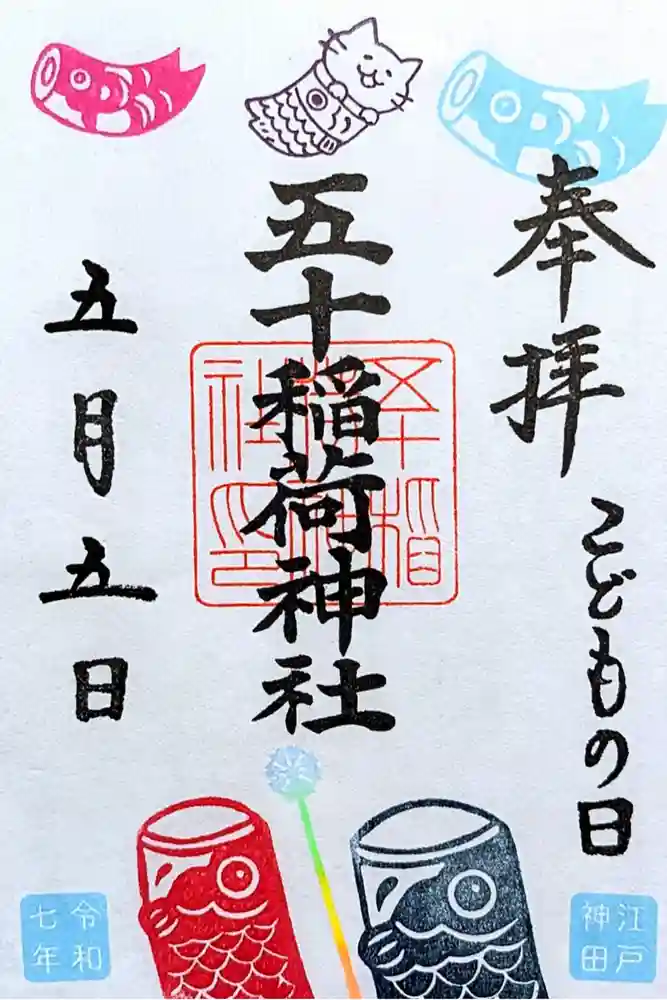 奉拝
こどもの日
五十稲荷神社
五十稲荷神社印
五月五日
江戸
神田
令和
七年